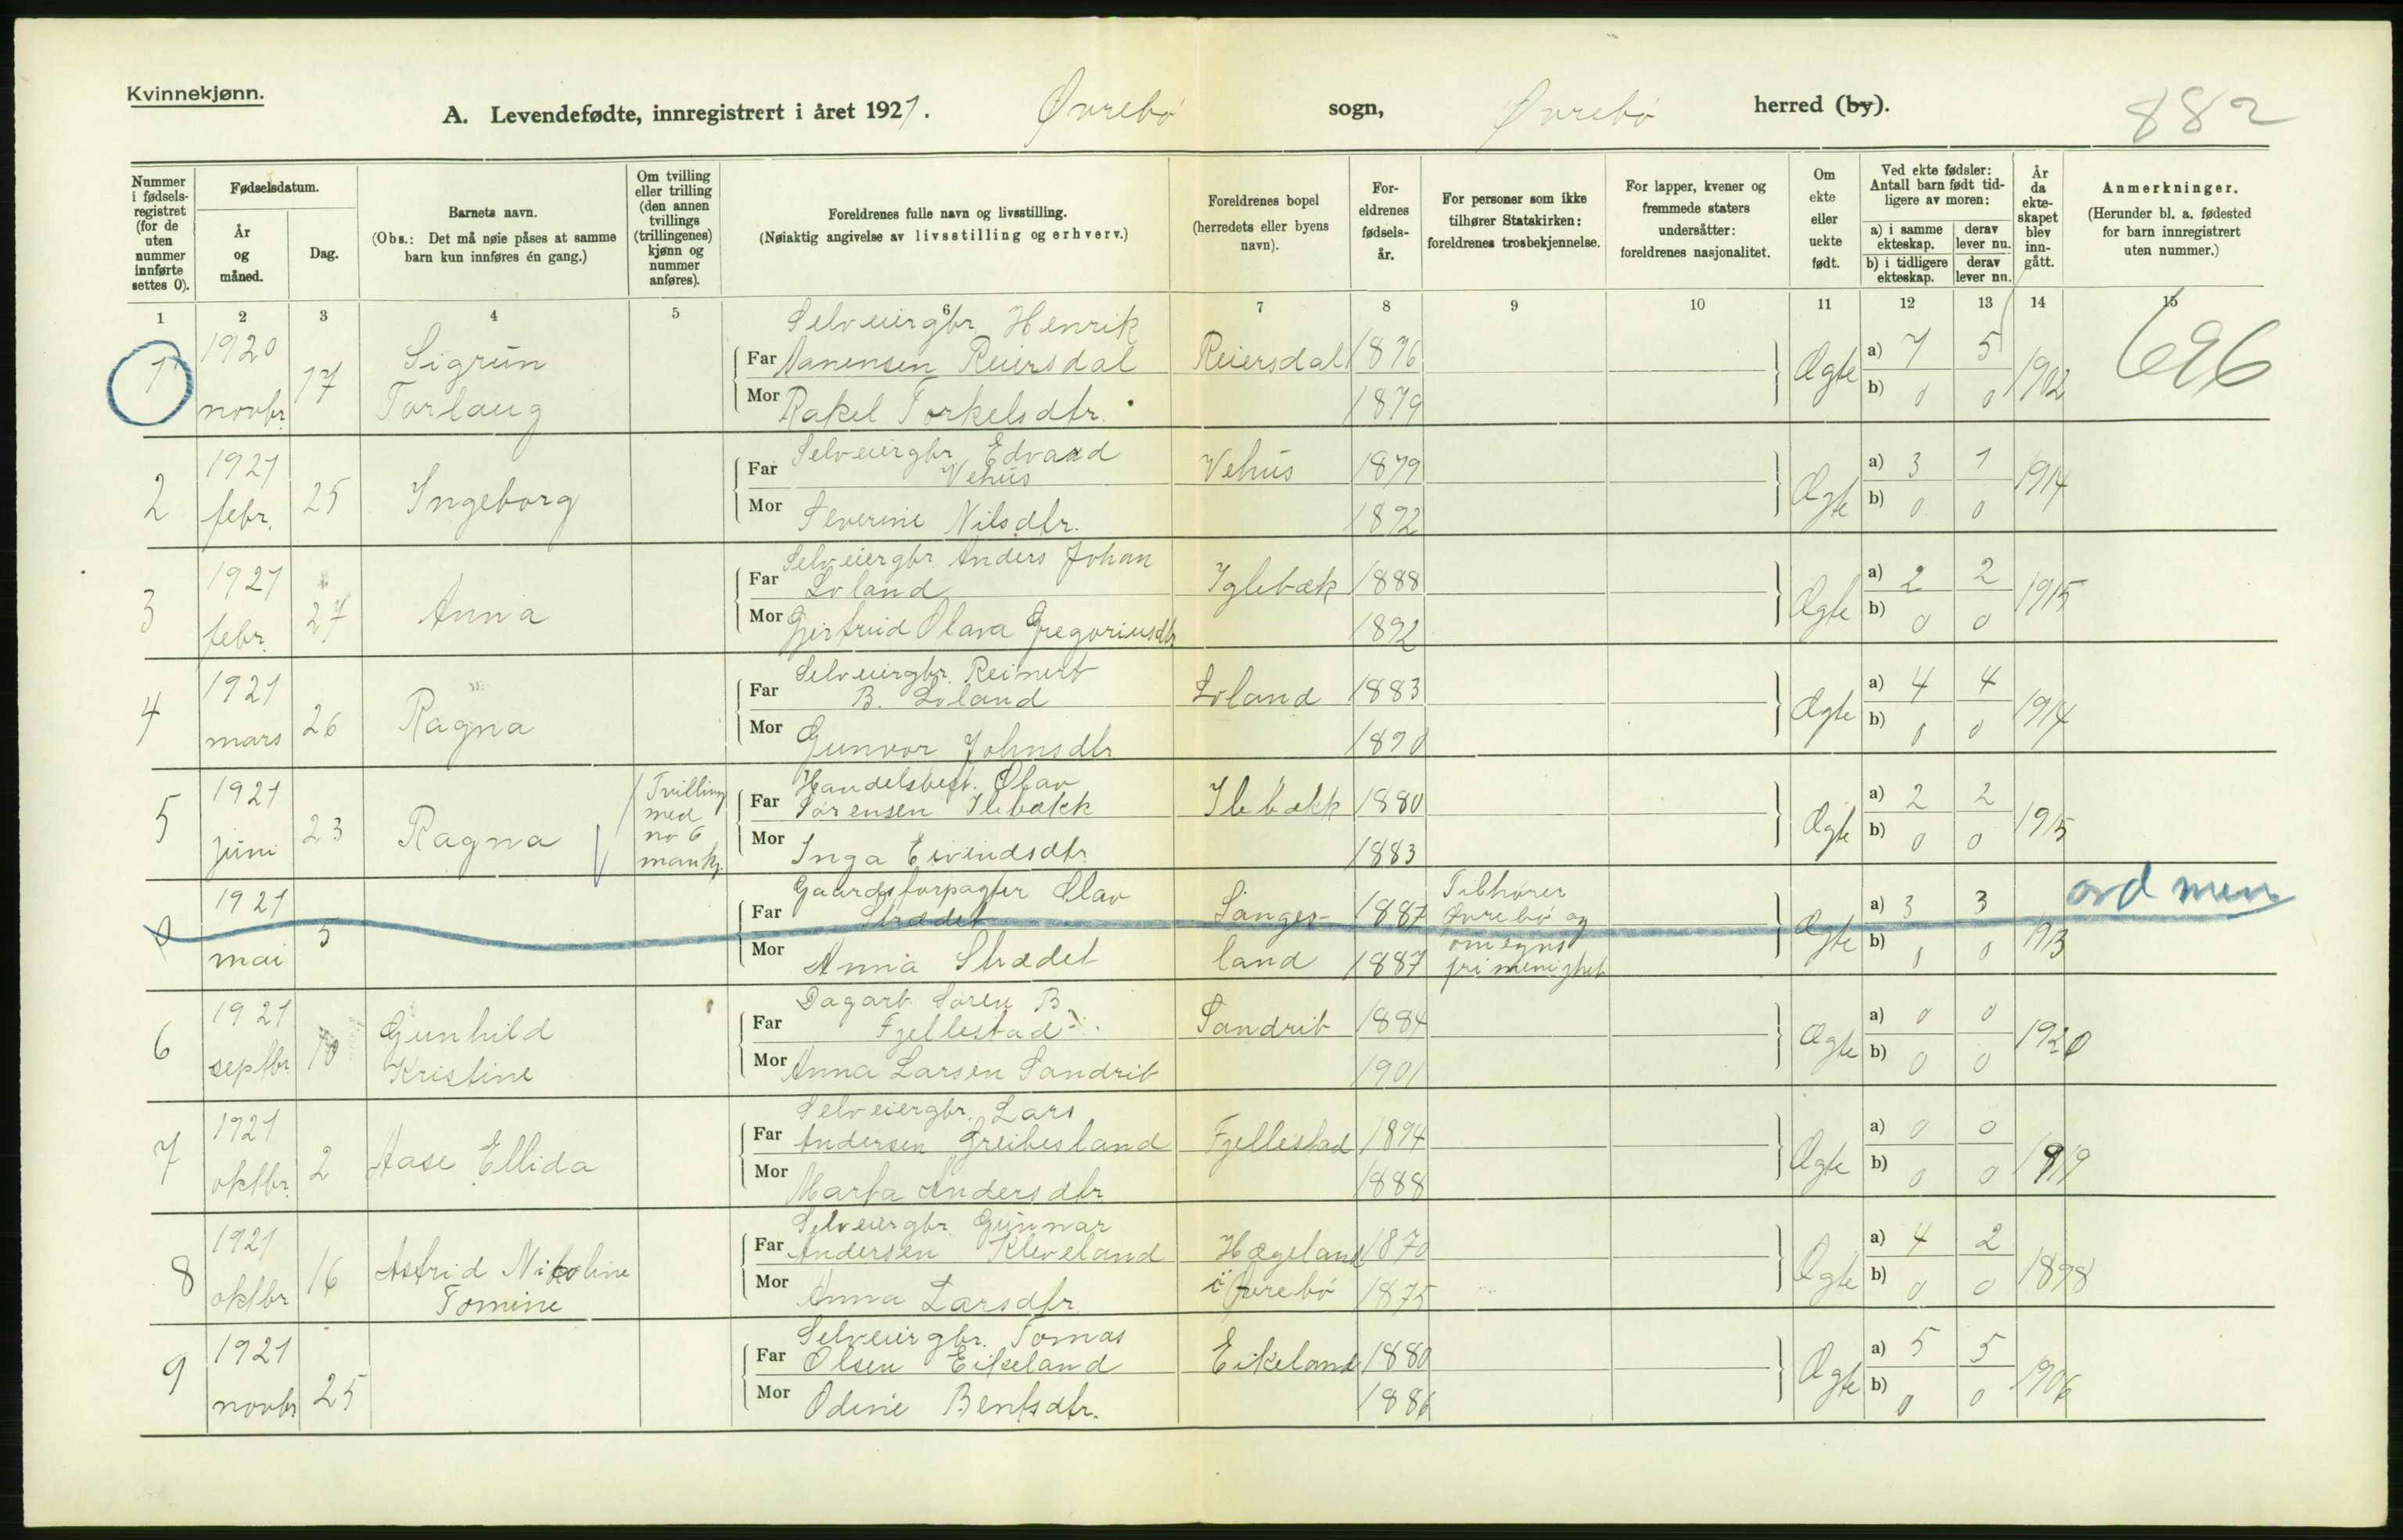 Kvinnekjønn.
A. Levendefødte, innregistrert i året 1921. Øvrebø sogn, Øvrebø herred (by).
882
Nummer i fødselsregistret (for de uten nummer innførte settes 0).
Fødselsdatum.
År og måned.
Dag.
Barnets navn.
(Obs.: Det må nøie påses at samme barn kun innføres én gang.)
Om tvilling eller trilling (den annen tvillings (trillingenes) kjønn og nummer anføres).
Foreldrenes fulle navn og livsstilling.
(Nøiaktig angivelse av livsstilling og erhverv.)
Foreldrenes bopel (herredets eller byens navn).
Foreldrenes fødselsår.
For personer som ikke tilhører Statskirken: foreldrenes trosbekjennelse.
For lapper, kvener og fremmede staters undersåtter: foreldrenes nasjonalitet.
Om ekte eller uekte født.
Ved ekte fødsler: Antall barn født tidligere av moren:
a) i samme ekteskap. derav lever nu.
b) i tidligere ekteskap. derav lever nu.
År da ekteskapet blev inngått.
Anmerkninger.
(Herunder bl. a. fødested for barn innregistrert uten nummer.)
1 2 3 4 5 6 7 8 9 10 11 12 13 14 15
1 1920 novbr. 17 Sigrun Torlaug
Selveiergbr. Henrik
Far Aanensen Reiersdal Reiersdal 1876
Mor Rakel Torkelsdtr. 1879
Ægte a) 7 5 b) 0 0 1902
696
2 1921 febr. 25 Ingeborg
Selveiergbr. Edvard
Far Vehus Vehus 1879
Mor Severine Nilsdtr. 1892
Ægte a) 3 1 b) 0 0 1914
3 1921 febr. 27 Anna
Selveiergbr. Anders Johan
Far Loland Iglebæk 1888
Mor Gjertruid Olava Gregoriusdtr 1892
Ægte a) 2 2 b) 0 0 1915
4 1921 mars 26 Ragna
Selveiergbr. Reinert
Far B. Loland Loland 1883
Mor Gunvor Johnsdtr 1890
Ægte a) 4 4 b) 0 0 1914
5 1921 juni 23 Ragna
Tvilling med no 6 mankj.
Handelsbest. Olav
Far Sørensen Ilebækk Ilebækk 1880
Mor Inga Eivindsdtr. 1883
Ægte a) 2 2 b) 0 0 1915
0 1921 mai 5
Gaardsforpagter Olav
Far Strædet Sanges- 1887
Mor Anna Strædet land 1887
Tilhører Øvrebø og omegns frimenighet
Ægte a) 3 3 b) 0 0 1913
6 1921 septbr. 10 Gunhild Kristine
Dagarb. Søren B.
Far Fjellestad Sandrib 1884
Mor Anna Larsen Sandrib 1901
Ægte a) 0 0 b) 0 0 1920
7 1921 oktbr. 2 Aase Ellida
Selveiergbr. Lars
Far Andersen Greibesland Fjellestad 1894
Mor Marta Andersdtr 1888
Ægte a) 0 0 b) 0 0 1919
8 1921 oktbr 16 Astrid Nikoline Tomine
Selveiergbr. Gunnar
Far Andersen Kleveland Hægeland 1870
Mor Anna Larsdtr. i Øvrebø 1875
Ægte a) 4 2 b) 0 0 1898
9 1921 novbr 25
Selveiergbr. Tomas
Far Olsen Eikeland Eikeland 1880
Mor Odine Bentsdtr. 1886
Ægte a) 5 5 b) 0 0 1906